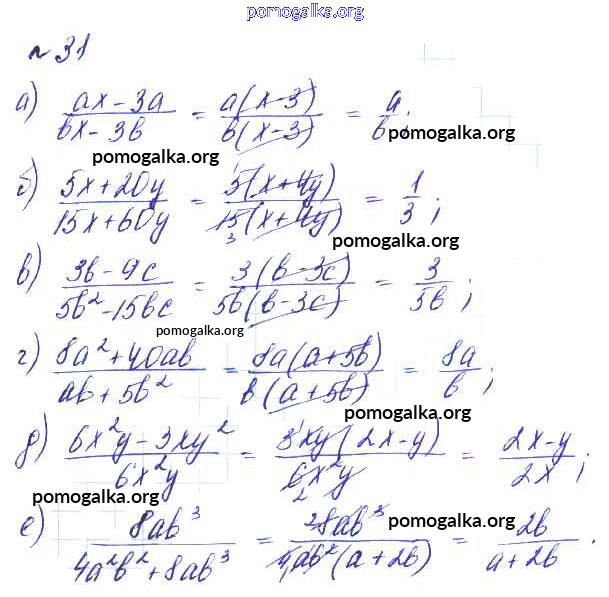 pomogalka.org
№31
а) (ax - 3a)/(bx - 3b) = a(x-3)/b(x-3) = a/b;
pomogalka.org
pomogalka.org
б) (5x + 20y)/(15x + 60y) = 1 5(x+4y)/15 3(x+4y) = 1/3;
pomogalka.org
в) (3b - 9c)/(5b² - 15bc) = 3(b-3c)/5b(b-3c) = 3/5b;
pomogalka.org
г) (8a² + 40ab)/(ab + 5b²) = 8a(a+5b)/b(a+5b) = 8a/b;
pomogalka.org
д) (6x²y - 3xy²)/6x²y = 3 1 xy(2x-y)/6 2 x²y = (2x-y)/2x;
pomogalka.org
pomogalka.org
е) 8ab³/(4a²b² + 8ab³) = 2 8ab³/4ab²(a+2b) = 2b/(a+2b).